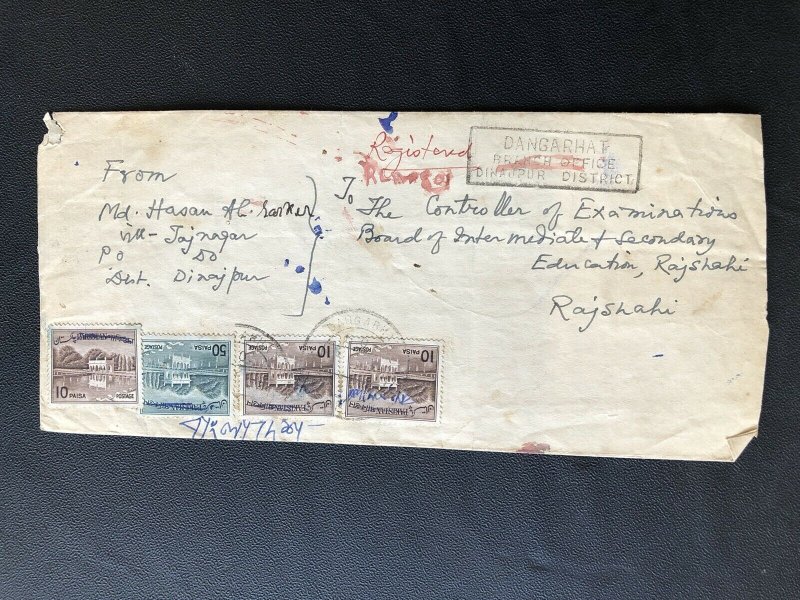 Registered
DANGARHAT
BRANCH OFFICE
DINAJPUR DISTRICT
From
Md. Hasan Ali Sarker
Vill- Tajnagar
PO DO
Dist. Dinajpur
To
The Controller of Examinations
Board of Intermediate & Secondary
Education, Rajshahi
Rajshahi
پاکستان
10 PAISA POSTAGE
50 PAISA POSTAGE
10 PAISA POSTAGE
10 PAISA POSTAGE
বাংলাদেশ